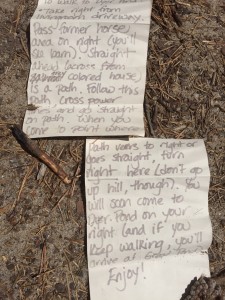 take right from
driveway.
Pass former horse
area on right (you'll
see barn). Straight
ahead (across from
colored house)
is a path. Follow this
path, cross power
lines and go straight
on path. When you
come to point where
Path veers to right or
goes straight, turn
right here (don't go
up hill, though). You
will soon come to
Dyer Pond on your
right (and if you
keep walking, you'll
arrive at
Enjoy!